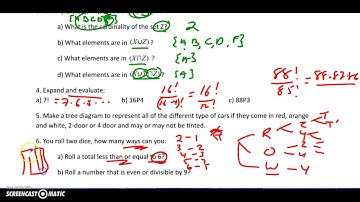 {A B C D F}
a) What is the cardinality of the set Z? 2
b) What elements are in (X∪Z)? {A, B, C, D, F}
c) What elements are in (X∩Z)? {A}
d) What elements are in {A}
4. Expand and evaluate:
a) 7! = 7·6·5··· b) 16P4 16!/(16-4)! = 16!/12! c) 88P3 88!/85! = 88·87·86
5. Make a tree diagram to represent all of the different type of cars if they come in red, orange
and white, 2-door or 4 door and may or may not be tinted.
6. You roll two dice, how many ways can you:
a) Roll a total less than or equal to 6?
b) Roll a number that is even or divisible by 9?
2-1
3-2
4-3
R
O
W - 4
SCREENCAST-O-MATIC